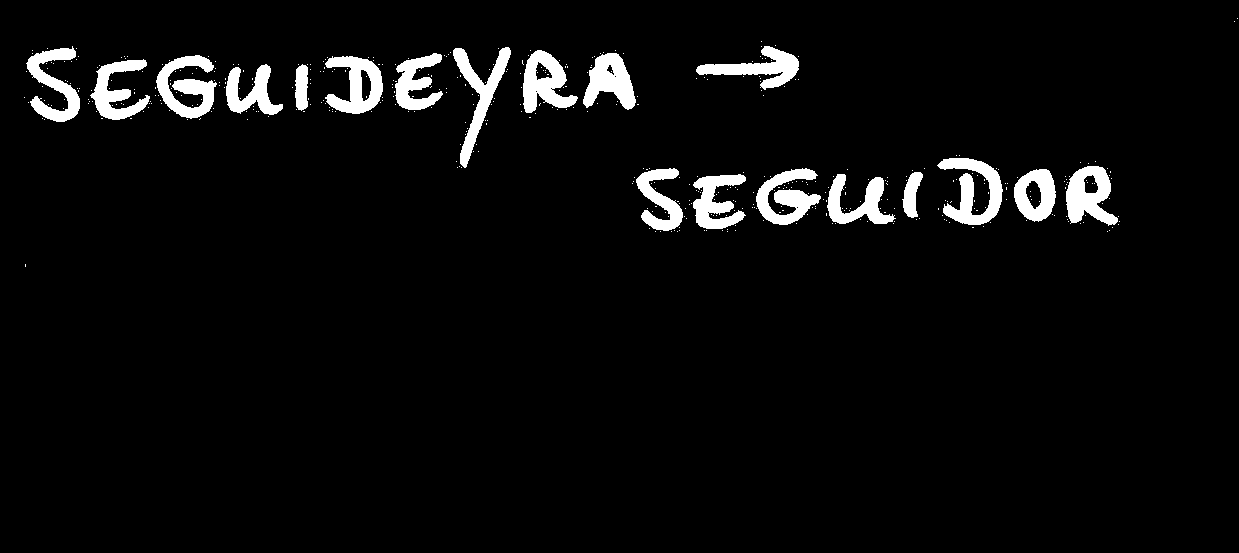 SEGUIDEYRA →
SEGUIDOR